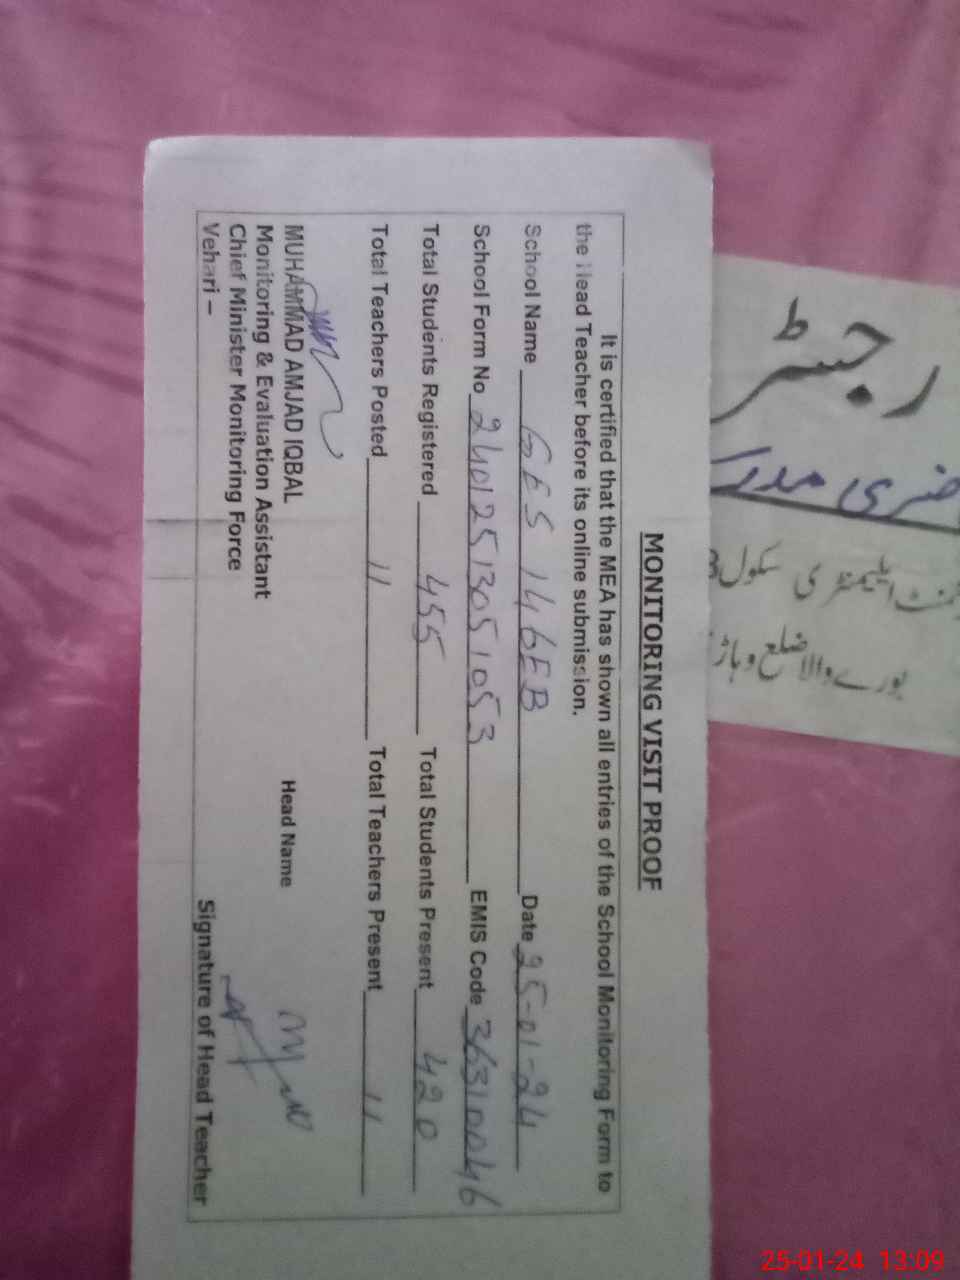 MONITORING VISIT PROOF
It is certified that the MEA has shown all entries of the School Monitoring Form to
the Head Teacher before its online submission.
School Name GES 146EB Date 25-01-24
School Form No 24012513051053 EMIS Code 36310046
Total Students Registered 455 Total Students Present 420
Total Teachers Posted 11 Total Teachers Present 11
MUHAMMAD AMJAD IQBAL Head Name
Monitoring & Evaluation Assistant
Chief Minister Monitoring Force
Vehari – Signature of Head Teacher
رجسٹر
سکول
بورے والا ضلع وہاڑ
25-01-24 13:09